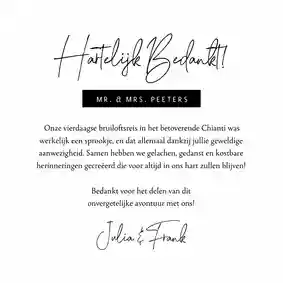 Hartelijk Bedankt!
MR. & MRS. PEETERS
Onze vierdaagse bruiloftsreis in het betoverende Chianti was
werkelijk een sprookje, en dat allemaal dankzij jullie geweldige
aanwezigheid. Samen hebben we gelachen, gedanst en kostbare
herinneringen gecreëerd die voor altijd in ons hart zullen blijven!
Bedankt voor het delen van dit
onvergetelijke avontuur met ons!
Julia & Frank